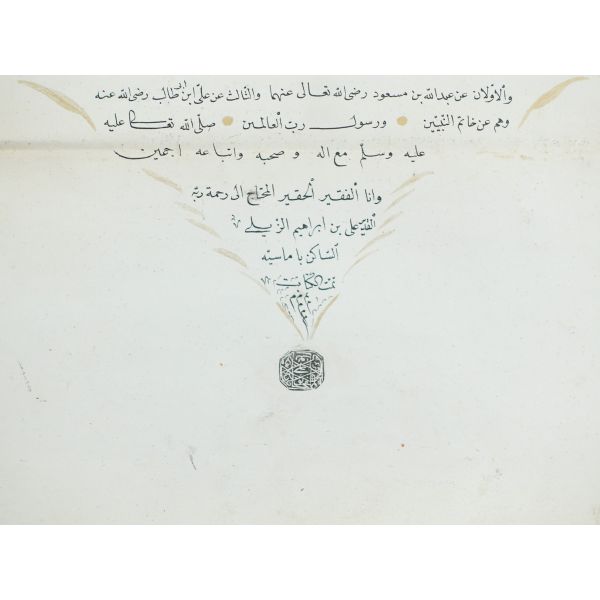 والاولان عن عبدالله بن مسعود رضى الله تعالى عنهما والثالث عن على ابن ابى طالب رضى الله عنه
وهم عن خاتم النبيين ورسول رب العالمين صلى الله تعالى عليه
عليه وسلم مع اله وصحبه واتباعه اجمعين
وانا الفقير الحقير المحتاج الى رحمة ربه
القدير على بن ابراهيم الزيلے
الساكن باماسيه
تمت الكتابت